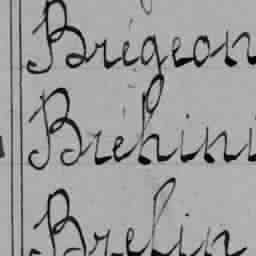 Brégeon
Bréhini
Brelin